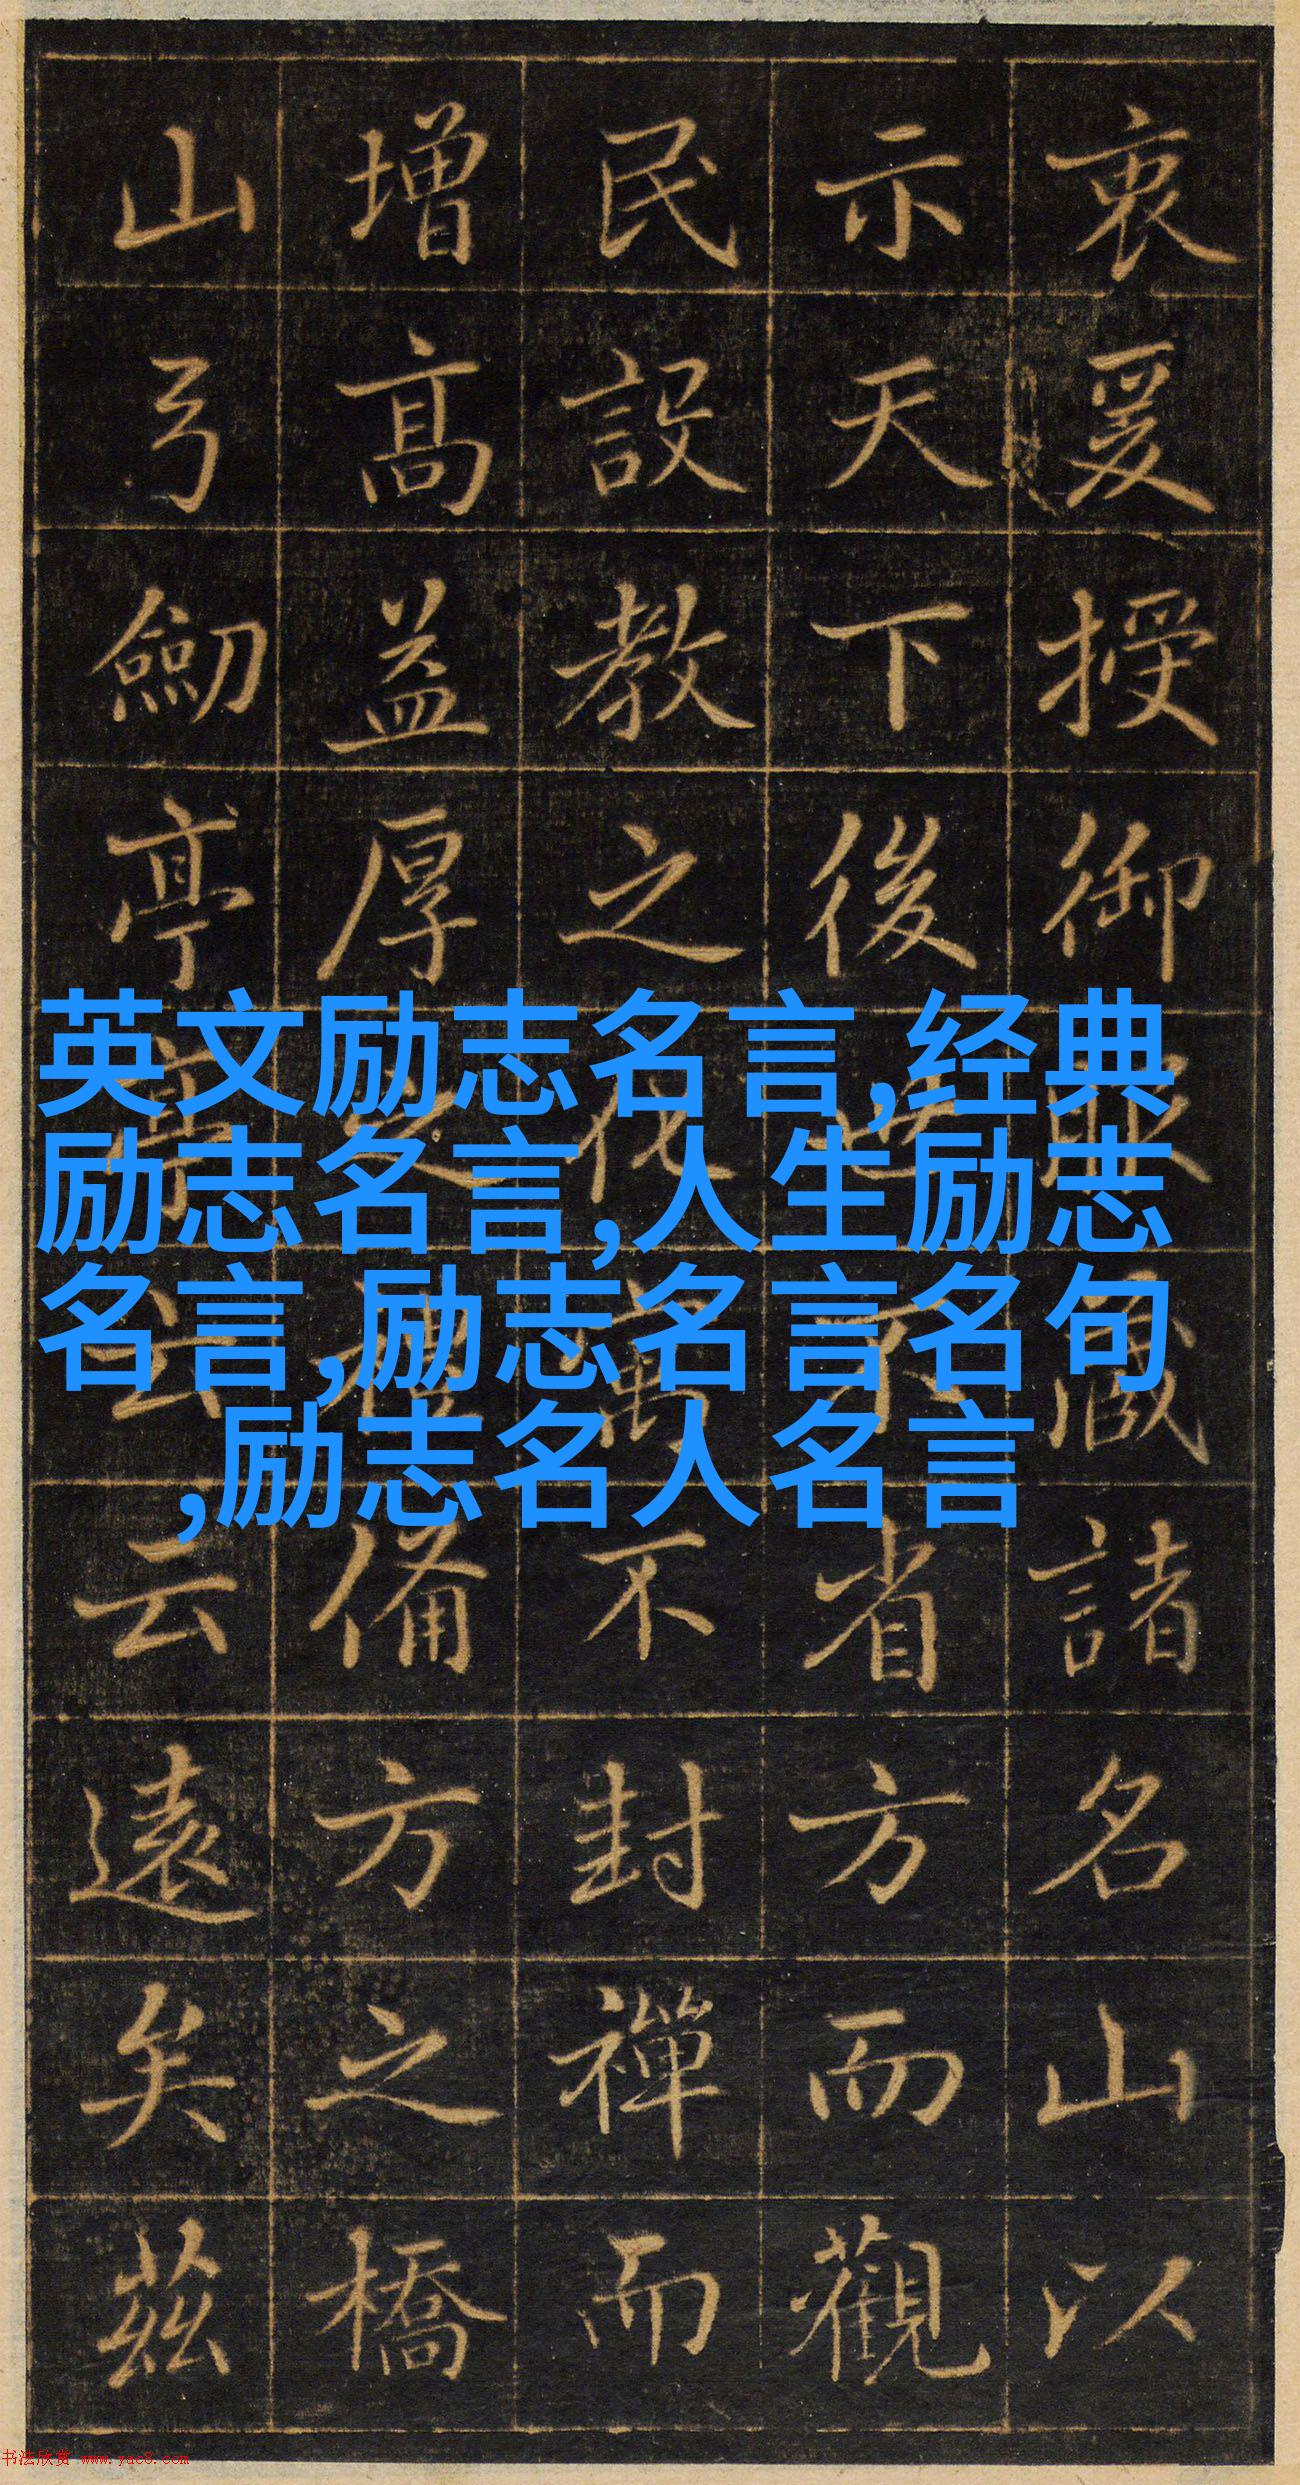 衷爰授御藏諸名山以
示天下後世省方而觀
民設教之不封禪而
增高益厚之備方之橋
山弓劒亭亭云云遠矣茲
英文励志名言,经典
励志名言,人生励志
名言,励志名言名句
,励志名人名言
书法欣赏 www.yac8.com